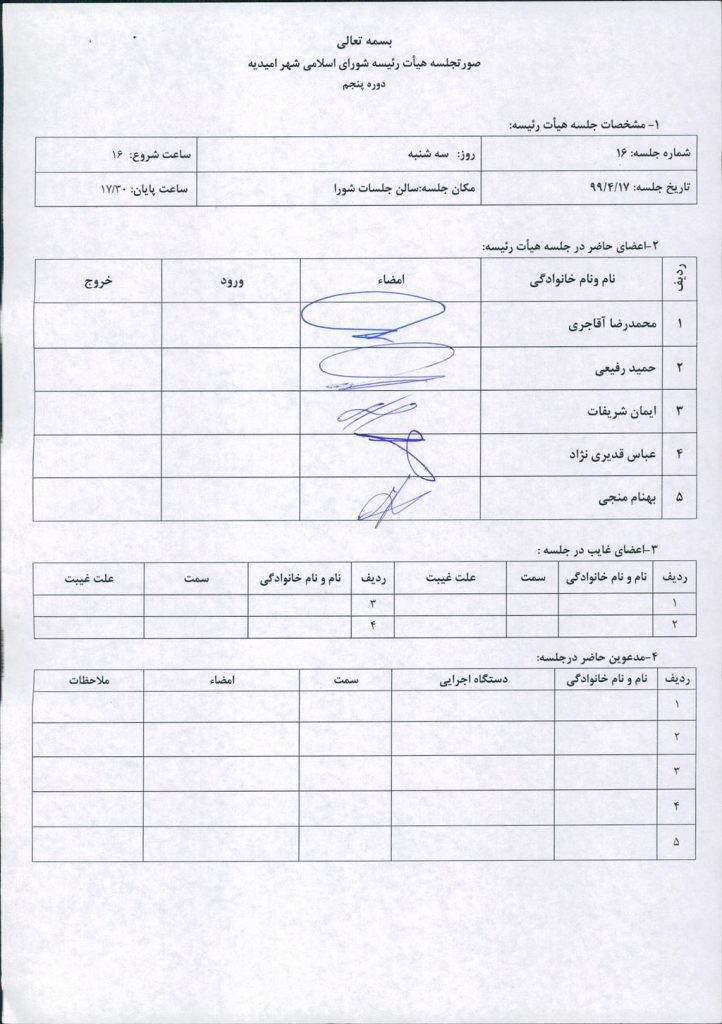 بسمه تعالی
صورتجلسه هیأت رئیسه شورای اسلامی شهر امیدیه
دوره پنجم
۱- مشخصات جلسه هیأت رئیسه:
شماره جلسه: ۱۶ روز: سه شنبه ساعت شروع: ۱۶
تاریخ جلسه: ۹۹/۴/۱۷ مکان جلسه:سالن جلسات شورا ساعت پایان: ۱۷/۳۰
۲-اعضای حاضر در جلسه هیأت رئیسه:
ردیف نام ونام خانوادگی امضاء ورود خروج
۱ محمدرضا آقاجری
۲ حمید رفیعی
۳ ایمان شریفات
۴ عباس قدیری نژاد
۵ بهنام منجی
۳-اعضای غایب در جلسه :
ردیف نام و نام خانوادگی سمت علت غیبت ردیف نام و نام خانوادگی سمت علت غیبت
۱ ۳
۲ ۴
۴-مدعوین حاضر درجلسه:
ردیف نام و نام خانوادگی دستگاه اجرایی سمت امضاء ملاحظات
۱
۲
۳
۴
۵